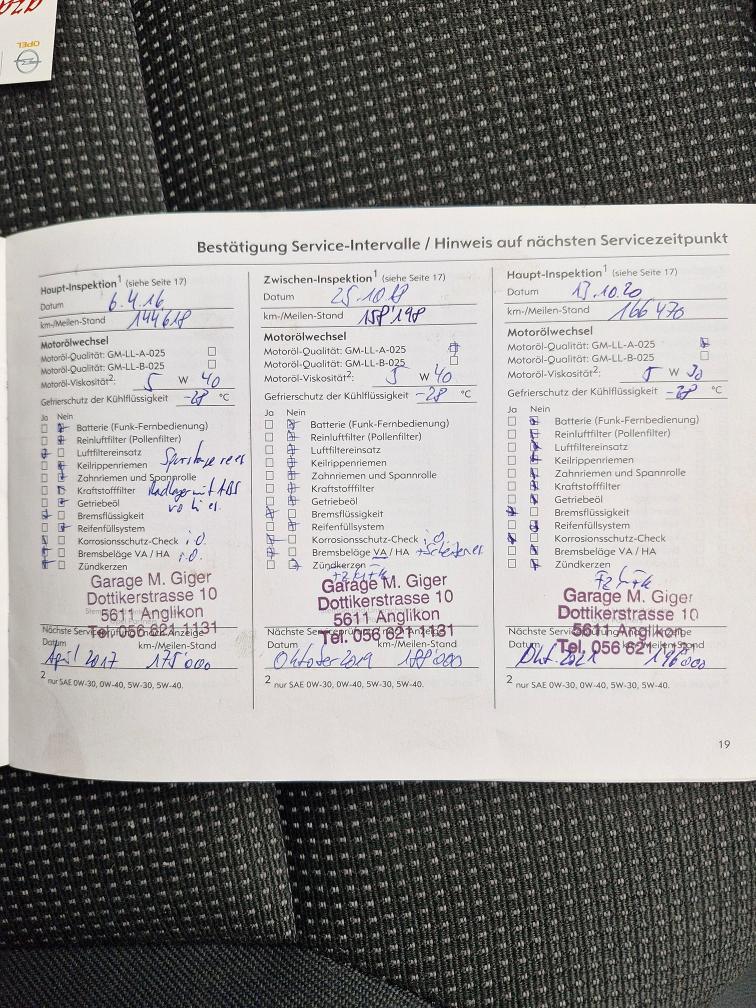 OPEL
Bestätigung Service-Intervalle / Hinweis auf nächsten Servicezeitpunkt
Haupt-Inspektion¹ (siehe Seite 17)
Datum 6.4.16
km-/Meilen-Stand 144618
Motorölwechsel
Motoröl-Qualität: GM-LL-A-025
Motoröl-Qualität: GM-LL-B-025
Motoröl-Viskosität²: 5 W 40
Gefrierschutz der Kühlflüssigkeit -28 °C
Ja Nein
Batterie (Funk-Fernbedienung)
Reinluftfilter (Pollenfilter)
Luftfiltereinsatz
Keilrippenriemen
Zahnriemen und Spannrolle
Kraftstofffilter
Getriebeöl
Bremsflüssigkeit
Reifenfüllsystem
Korrosionsschutz-Check i.O.
Bremsbeläge VA / HA i.O.
Zündkerzen
Garage M. Giger
Dottikerstrasse 10
5611 Anglikon
Tel. 056 621 1131
Datum km-/Meilen-Stand
April 2017 175'000
² nur SAE 0W-30, 0W-40, 5W-30, 5W-40.
Zwischen-Inspektion¹ (siehe Seite 17)
Datum 25.10.18
km-/Meilen-Stand 158'198
Motorölwechsel
Motoröl-Qualität: GM-LL-A-025
Motoröl-Qualität: GM-LL-B-025
Motoröl-Viskosität²: 5 W 40
Gefrierschutz der Kühlflüssigkeit -28 °C
Ja Nein
Batterie (Funk-Fernbedienung)
Reinluftfilter (Pollenfilter)
Luftfiltereinsatz
Keilrippenriemen
Zahnriemen und Spannrolle
Kraftstofffilter
Getriebeöl
Bremsflüssigkeit
Reifenfüllsystem
Korrosionsschutz-Check i.O.
Bremsbeläge VA / HA
Zündkerzen
Garage M. Giger
Dottikerstrasse 10
5611 Anglikon
Tel. 056 621 1131
Datum km-/Meilen-Stand
Oktober 2019 188'000
² nur SAE 0W-30, 0W-40, 5W-30, 5W-40.
Haupt-Inspektion¹ (siehe Seite 17)
Datum 13.10.20
km-/Meilen-Stand 166470
Motorölwechsel
Motoröl-Qualität: GM-LL-A-025
Motoröl-Qualität: GM-LL-B-025
Motoröl-Viskosität²: 5 W 30
Gefrierschutz der Kühlflüssigkeit -28 °C
Ja Nein
Batterie (Funk-Fernbedienung)
Reinluftfilter (Pollenfilter)
Luftfiltereinsatz
Keilrippenriemen
Zahnriemen und Spannrolle
Kraftstofffilter
Getriebeöl
Bremsflüssigkeit
Reifenfüllsystem
Korrosionsschutz-Check
Bremsbeläge VA / HA
Zündkerzen
Garage M. Giger
Dottikerstrasse 10
5611 Anglikon
Tel. 056 621
Datum
Okt. 2021 196'000
² nur SAE 0W-30, 0W-40, 5W-30, 5W-40.
19